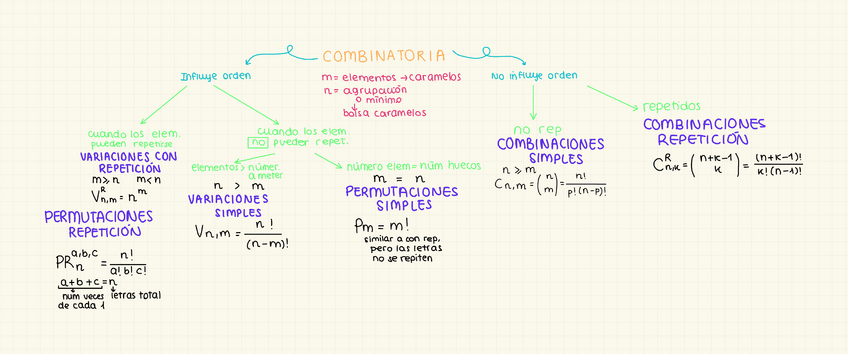 COMBINATORIA
m= elementos → caramelos
n = agrupación
o mínimo
↓
bolsa caramelos
Influye orden
cuando los elem.
pueden repetirse
VARIACIONES CON
REPETICIÓN
m≥n m<n
V^R_{n,m} = n^m
PERMUTACIONES
REPETICIÓN
PR_n^{a,b,c} = n! / a! b! c!
a+b+c = n
num veces
de cada 1
letras total
cuando los elem
no pueden repet.
elementos > númer.
a meter
n > m
VARIACIONES
SIMPLES
V_{n,m} = n! / (n-m)!
número elem = núm huecos
m = n
PERMUTACIONES
SIMPLES
P_m = m!
similar a con rep.
pero las letras
no se repiten
No influye orden
no rep
COMBINACIONES
SIMPLES
n ≥ m
C_{n,m} = (n m) = n! / p! (n-p)!
repetidos
COMBINACIONES
REPETICIÓN
C^R_{n,k} = (n+k-1 k) = (n+k-1)! / k! (n-1)!